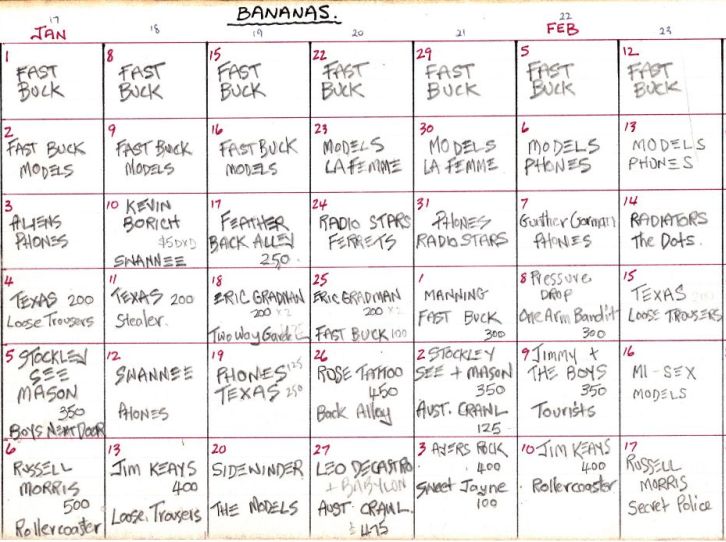 BANANAS.
17
JAN
18
19
20
21
22
FEB
23
1
FAST
BUCK
8
FAST
BUCK
15
FAST
BUCK
22
FAST
BUCK
29
FAST
BUCK
5
FAST
BUCK
12
FAST
BUCK
2
FAST BUCK
MODELS
9
FAST BUCK
MODELS
16
FAST BUCK
MODELS
23
MODELS
LA FEMME
30
MODELS
LA FEMME
6
MODELS
PHONES
13
MODELS
PHONES
3
ALIENS
PHONES
10 KEVIN
BORICH
SWANNEE
17
FEATHER
BACK ALLEY
250
24
RADIO STARS
FERRETS
31
PHONES
RADIO STARS
7
Gunther Gorman
PHONES
14
RADIATORS
The Dots.
4
TEXAS 200
Loose Trousers
11
TEXAS 200
Stealer.
18
ERIC GRADMAN
200 x 2
Two Way Garden
25
ERIC GRADMAN
200 x 2
FAST BUCK 100
1
MANNING
FAST BUCK
300
8 Pressure
DROP
One Arm Bandit
300
15
TEXAS
LOOSE TROUSERS
5 STOCKLEY
SEE
MASON
350
BOYS NEXT DOOR
12
SWANNEE
PHONES
19
PHONES 125
TEXAS 250
26
ROSE TATTOO
450
Back Alley
2 STOCKLEY
SEE + MASON
350
AUST. CRAWL
125
9 Jimmy +
THE BOYS
350
Tourists
16
MI-SEX
MODELS
6
RUSSELL
MORRIS
500
Rollercoaster
13
JIM KEAYS
400
Loose Trousers
20
SIDEWINDER
THE MODELS
27
LEO DECASTRO
+ BABYLON
AUST. CRAWL
475
3 AYERS ROCK
400
Sweet Jayne
100
10 JIM KEAYS
400
Rollercoaster
17
RUSSELL
MORRIS
Secret Police